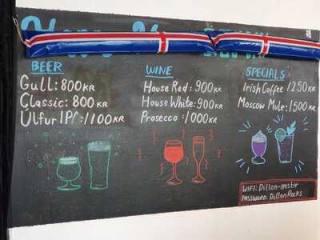 BEER
Gull: 800 KR
Classic: 800 KR
Úlfur IPA: 1100 KR
WINE
House Red: 900 KR
House White: 900 KR
Prosecco: 1000 KR
SPECIALS
Irish Coffee 1250 KR
Moscow Mule: 1500 KR
WiFi: Dillon-gestir
Password: DillonRocks